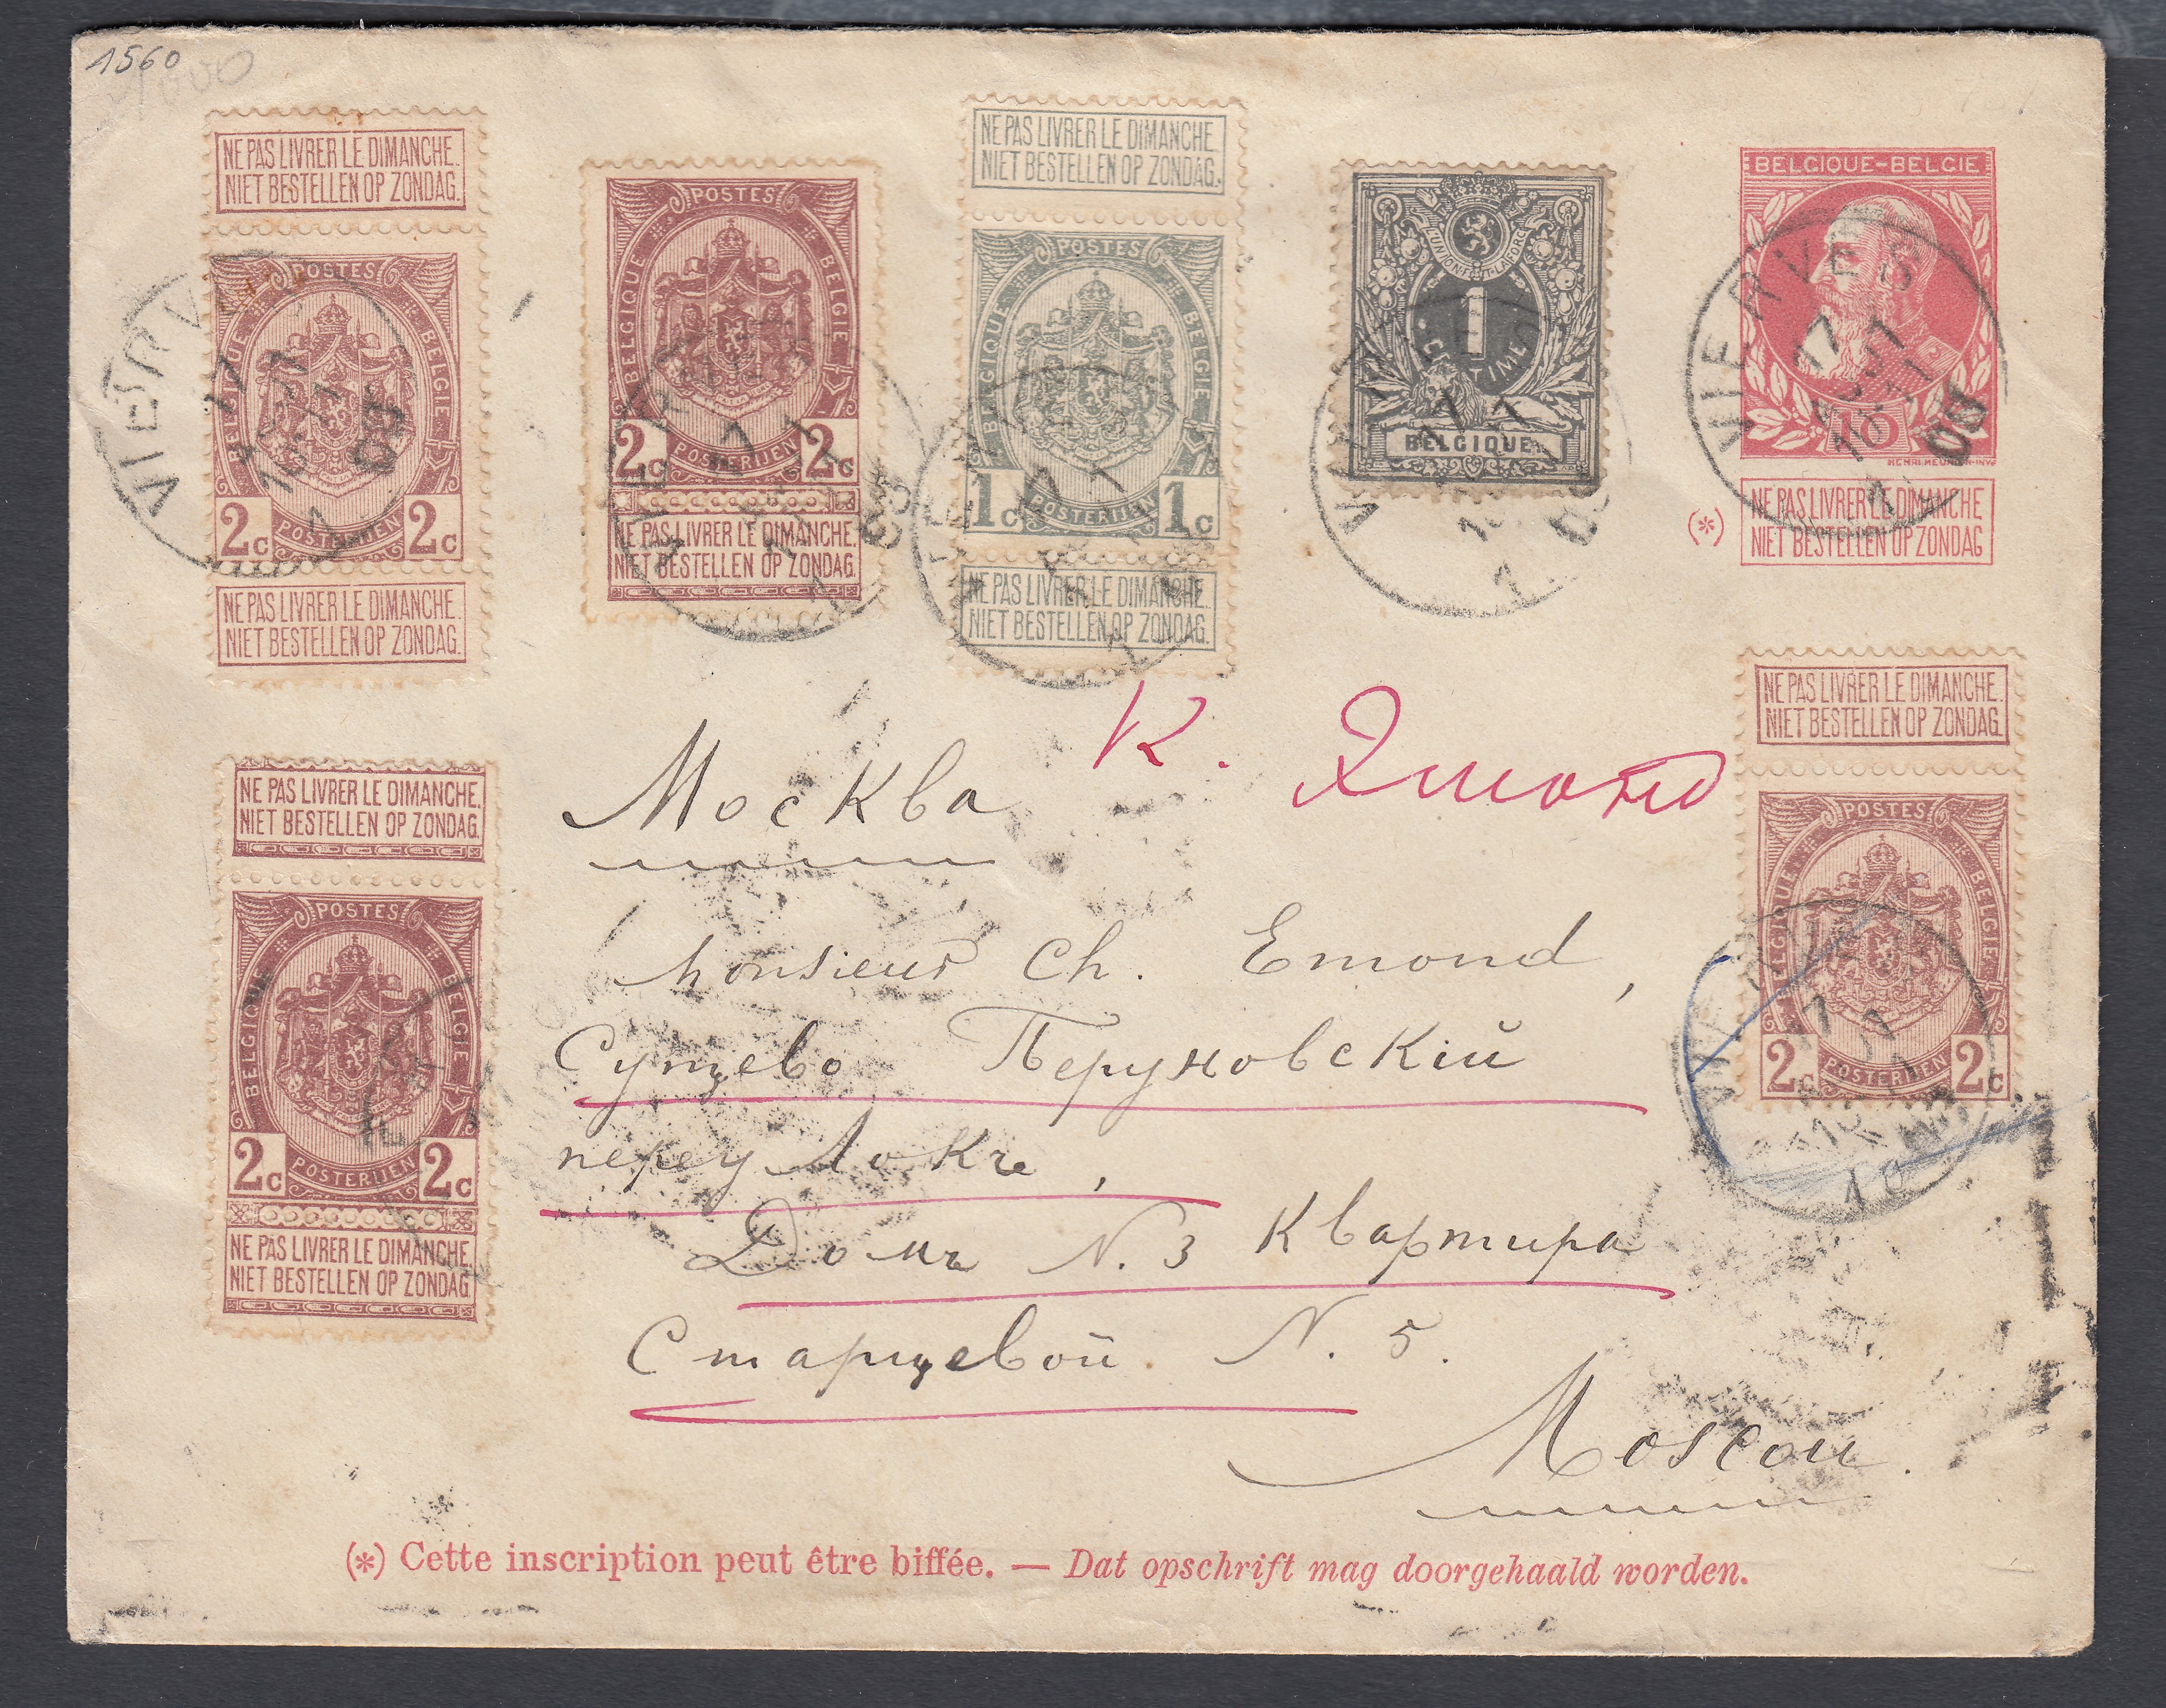 1560
NE PAS LIVRER LE DIMANCHE.
NIET BESTELLEN OP ZONDAG.
POSTES
BELGIQUE BELGIE
2c 2c
POSTERIJEN
NE PAS LIVRER LE DIMANCHE.
NIET BESTELLEN OP ZONDAG.
POSTES
BELGIQUE BELGIE
2c 2c
POSTERIJEN
NE PAS LIVRER LE DIMANCHE.
NIET BESTELLEN OP ZONDAG.
NE PAS LIVRER LE DIMANCHE.
NIET BESTELLEN OP ZONDAG.
POSTES
BELGIQUE BELGIE
1c 1c
POSTERIJEN
NE PAS LIVRER LE DIMANCHE.
NIET BESTELLEN OP ZONDAG.
L'UNION FAIT LA FORCE
1
CENTIME
BELGIQUE
BELGIQUE-BELGIE
VIERVES
17
AOUT
16-17
1905
(*) NE PAS LIVRER LE DIMANCHE
NIET BESTELLEN OP ZONDAG
NE PAS LIVRER LE DIMANCHE.
NIET BESTELLEN OP ZONDAG.
POSTES
BELGIQUE BELGIE
2c 2c
POSTERIJEN
NE PAS LIVRER LE DIMANCHE.
NIET BESTELLEN OP ZONDAG.
POSTES
BELGIQUE BELGIE
2c 2c
POSTERIJEN
NE PAS LIVRER LE DIMANCHE.
NIET BESTELLEN OP ZONDAG
К. Эмонд
Москва
Monsieur Ch. Emond,
Сущево Перуновскій
переулокъ,
Домъ N. 3 Квартира
Старцевой. N. 5.
Moscou.
(*) Cette inscription peut être biffée. — Dat opschrift mag doorgehaald worden.